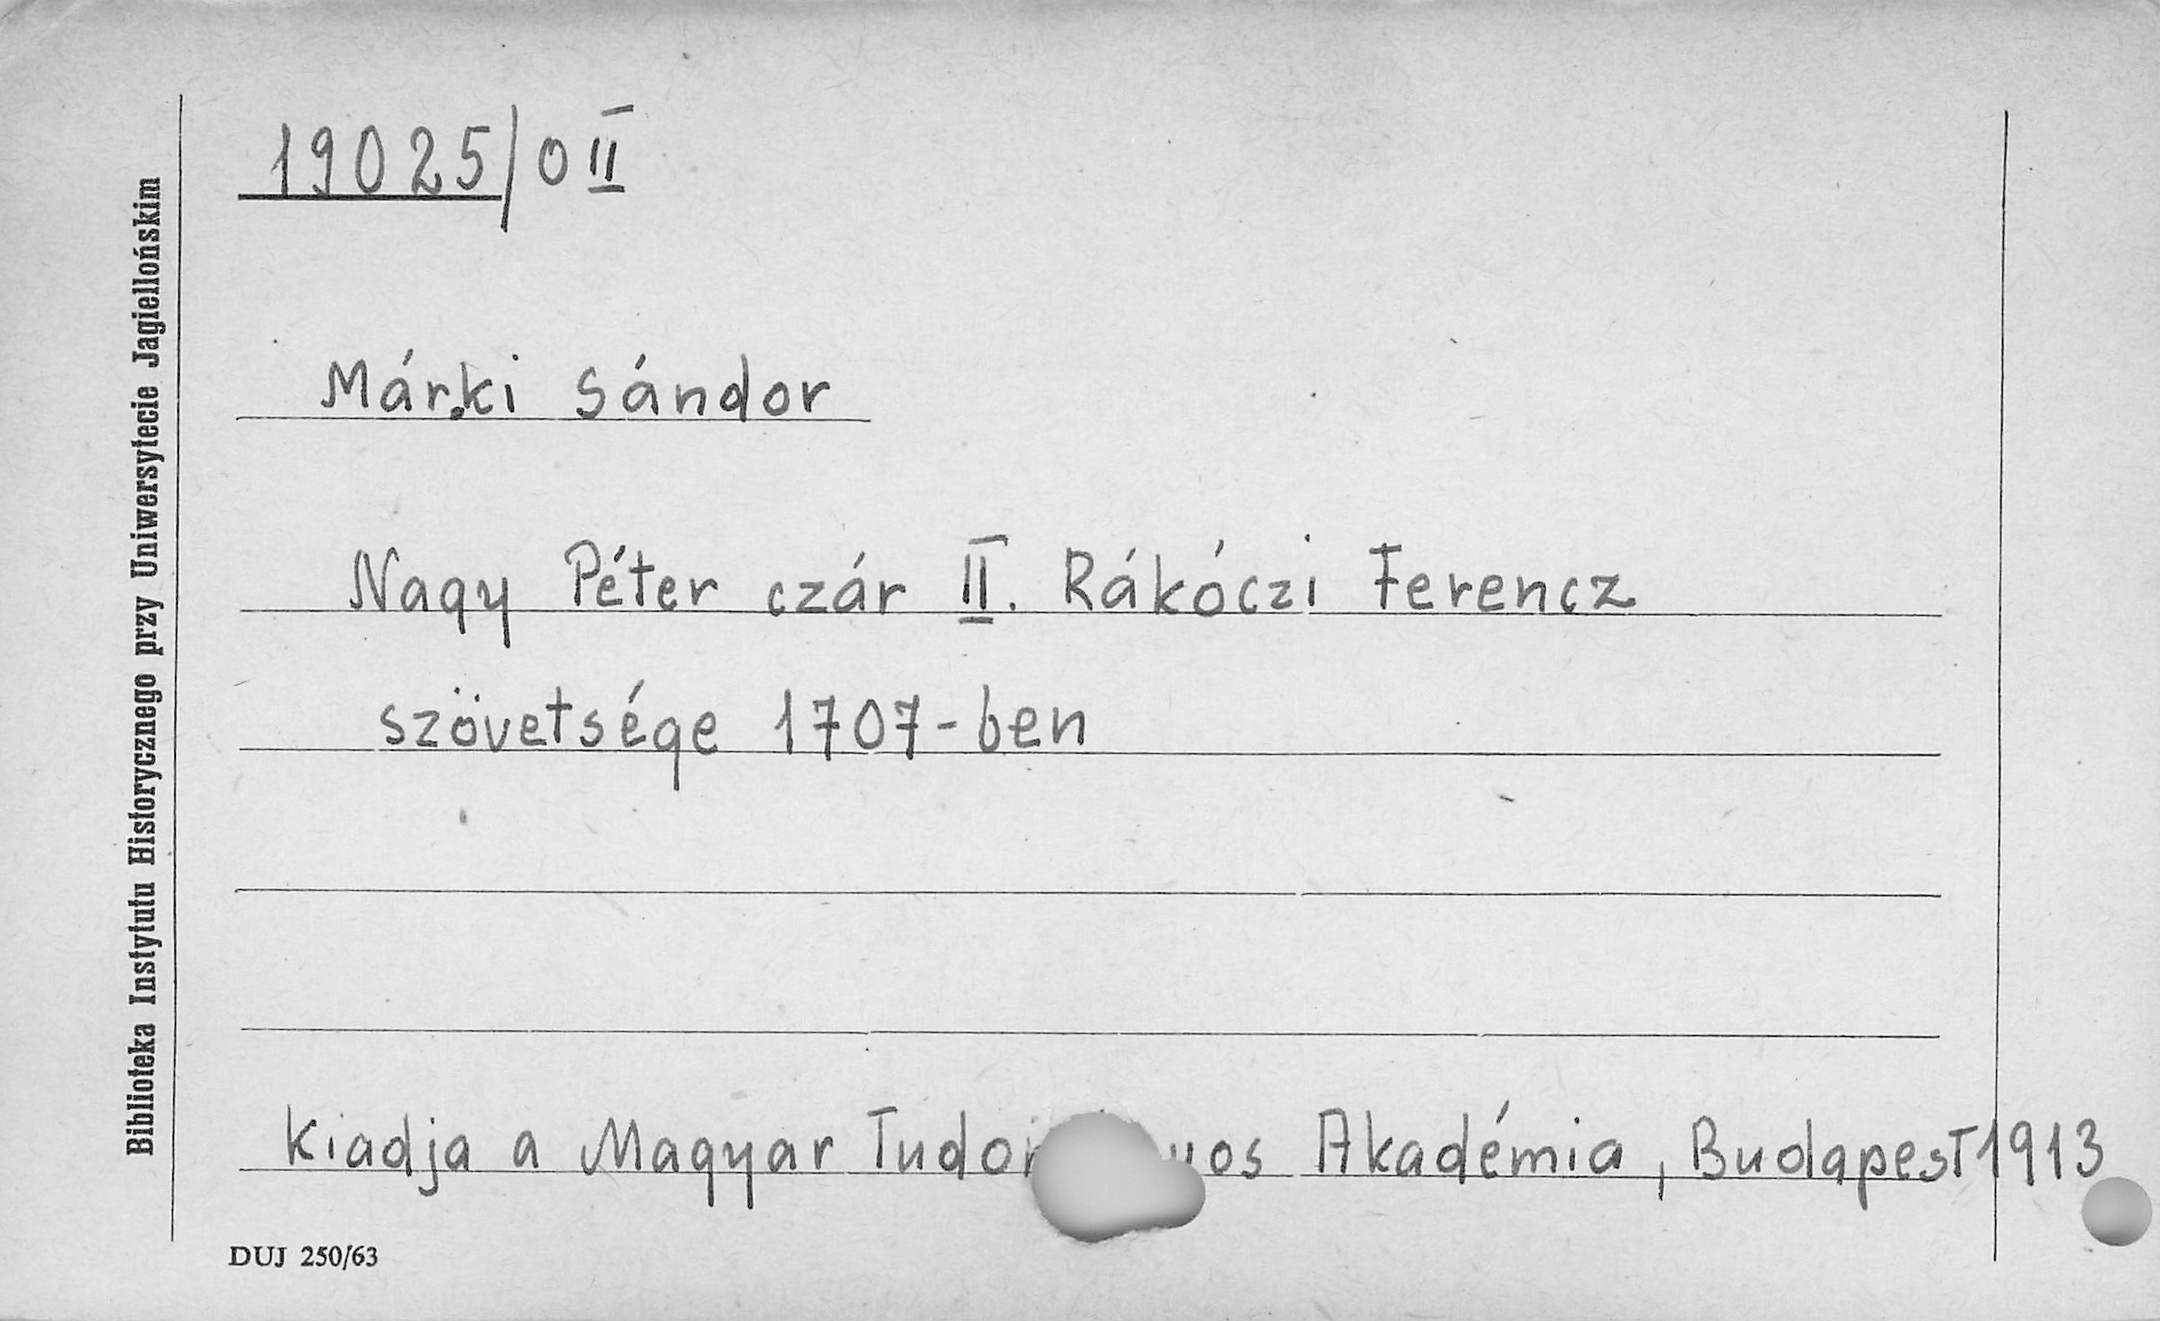 19025/0 II
Márki Sándor
Nagy Péter czár II. Rákóczi Ferencz
szövetsége 1707-ben
Kiadja a Magyar Akadémia, Budapest 1913
DUJ 250/63
Biblioteka Instytutu Historycznego przy Uniwersytecie Jagiellońskim